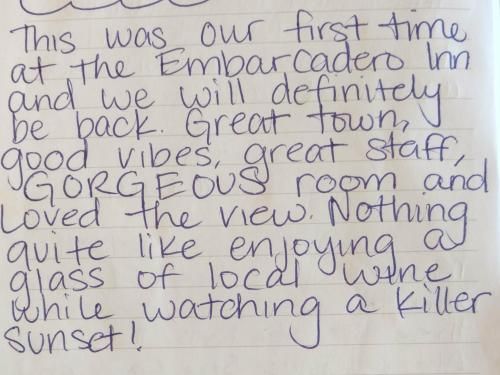 This was our first time
at the Embarcadero Inn
and we will definitely
be back. Great town,
good vibes, great staff,
GORGEOUS room and
Loved the view. Nothing
quite like enjoying a
glass of local wine
while watching a killer
sunset!